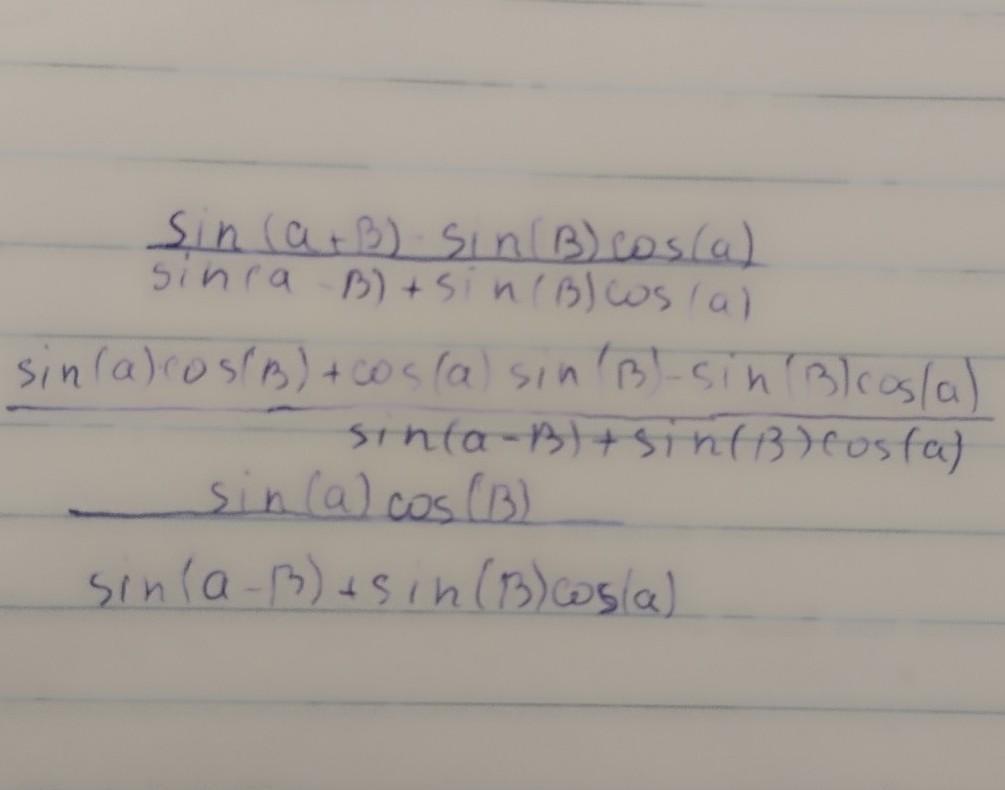 sin(a+B)-sin(B)cos(a)
sin(a-B)+sin(B)cos(a)
sin(a)cos(B)+cos(a)sin(B)-sin(B)cos(a)
sin(a-B)+sin(B)cos(a)
sin(a)cos(B)
sin(a-B)+sin(B)cos(a)